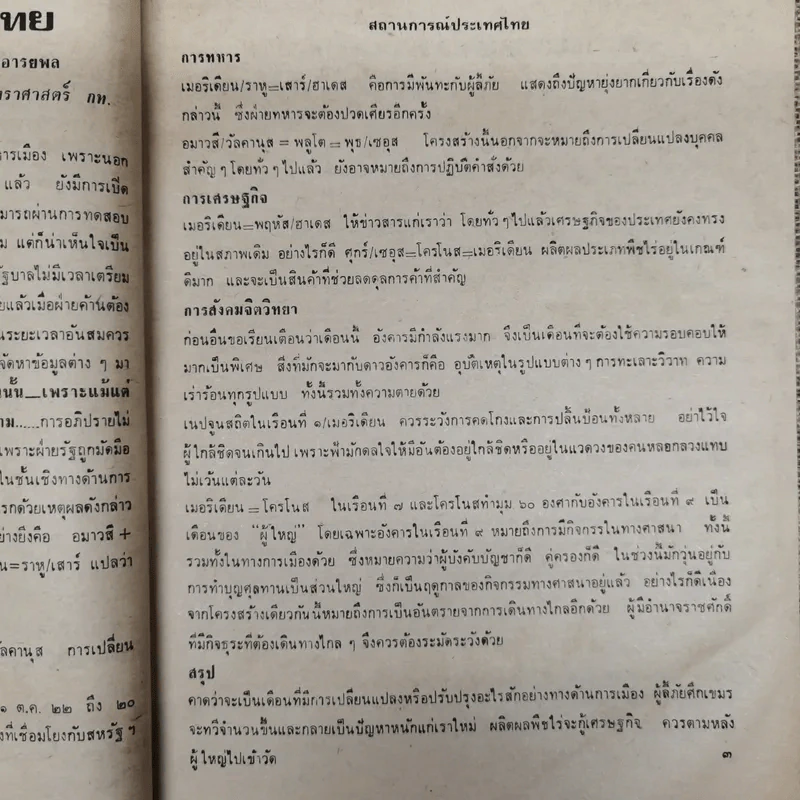 ทย
อารยพล
ราศาสตร์ กท.
ารเมือง เพราะนอก
แล้ว ยังมีการเปิด
มารถผ่านการทดสอบ
ม แต่ก็น่าเห็นใจเป็น
รัฐบาลไม่มีเวลาเตรียม
ยแล้วเมื่อฝ่ายค้านต้อง
นระยะเวลาอันสมควร
จัดหาข้อมูลต่าง ๆ มา
นั้น__เพราะแม้แต่
าม......การอภิปรายไม่
เพราะฝ่ายรัฐถูกมัดมือ
ในชั้นเชิงทางด้านการ
รกด้วยเหตุผลดังกล่าว
ย่างยิ่งคือ อมาวสี +
น=ราหู/เสาร์ แปลว่า
ัลคานุส การเปลี่ยน
๑ ต.ค. ๒๒ ถึง ๒๐
งที่เชื่อมโยงกับสหรัฐฯ
สถานการณ์ประเทศไทย
การทหาร
เมอริเดียน/ราหู=เสาร์/ฮาเดส คือการมีพันทะกับผู้ลี้ภัย แสดงถึงปัญหายุ่งยากเกี่ยวกับเรื่องดัง
กล่าวนี้ ซึ่งฝ่ายทหารจะต้องปวดเศียรอีกครั้ง
อมาวสี/วัลคานุส = พลูโต = พุธ/เซอุส โครงสร้างนี้นอกจากจะหมายถึงการเปลี่ยนแปลงบุคคล
สำคัญ ๆ โดยทั่ว ๆ ไปแล้ว ยังอาจหมายถึงการปฏิบัติคำสั่งด้วย
การเศรษฐกิจ
เมอริเดียน=พฤหัส/ฮาเดส ให้ข่าวสารแก่เราว่า โดยทั่ว ๆ ไปแล้วเศรษฐกิจของประเทศยังคงทรง
อยู่ในสภาพเดิม อย่างไรก็ดี ศุกร์/เซอุส=โครโนส=เมอริเดียน ผลิตผลประเภทพืชไร่อยู่ในเกณฑ์
ดีมาก และจะเป็นสินค้าที่ช่วยลดดุลการค้าที่สำคัญ
การสังคมจิตวิทยา
ก่อนอื่นขอเรียนเตือนว่าเดือนนี้ อังคารมีกำลังแรงมาก จึงเป็นเดือนที่จะต้องใช้ความรอบคอบให้
มากเป็นพิเศษ สิ่งที่มักจะมากับดาวอังคารก็คือ อุบัติเหตุในรูปแบบต่าง ๆ การทะเลาะวิวาท ความ
เร่าร้อนทุกรูปแบบ ทั้งนี้รวมทั้งความตายด้วย
เนปจูนสถิตในเรือนที่ ๑/เมอริเดียน ควรระวังการคดโกงและการปลิ้นปล้อนทั้งหลาย อย่าไว้ใจ
ผู้ใกล้ชิดจนเกินไป เพราะฟ้ามักดลใจให้มีอันต้องอยู่ใกล้ชิดหรืออยู่ในแวดวงของคนหลอกลวงแทบ
ไม่เว้นแต่ละวัน
เมอริเดียน=โครโนส ในเรือนที่ ๗ และโครโนสทำมุม ๖๐ องศากับอังคารในเรือนที่ ๙ เป็น
เดือนของ “ผู้ใหญ่” โดยเฉพาะอังคารในเรือนที่ ๙ หมายถึงการมีกิจกรรมในทางศาสนา ทั้งนี้
รวมทั้งในทางการเมืองด้วย ซึ่งหมายความว่าผู้บังคับบัญชาก็ดี คู่ครองก็ดี ในช่วงนี้มักวุ่นอยู่กับ
การทำบุญศุลทานเป็นส่วนใหญ่ ซึ่งก็เป็นฤดูกาลของกิจกรรมทางศาสนาอยู่แล้ว อย่างไรก็ดีเนื่อง
จากโครงสร้างเดียวกันนี้หมายถึงการเป็นอันตรายจากการเดินทางไกลอีกด้วย ผู้มีอำนาจราชศักดิ์
ที่มีกิจธุระที่ต้องเดินทางไกล ๆ จึงควรต้องระมัดระวังด้วย
สรุป
คาดว่าจะเป็นเดือนที่มีการเปลี่ยนแปลงหรือปรับปรุงอะไรสักอย่างทางด้านการเมือง ผู้ลี้ภัยศึกเขมร
จะทวีจำนวนขึ้นและกลายเป็นปัญหาหนักแก่เราใหม่ ผลิตผลพืชไร่จะกู้เศรษฐกิจ ควรตามหลัง
ผู้ใหญ่ไปเข้าวัด
๓